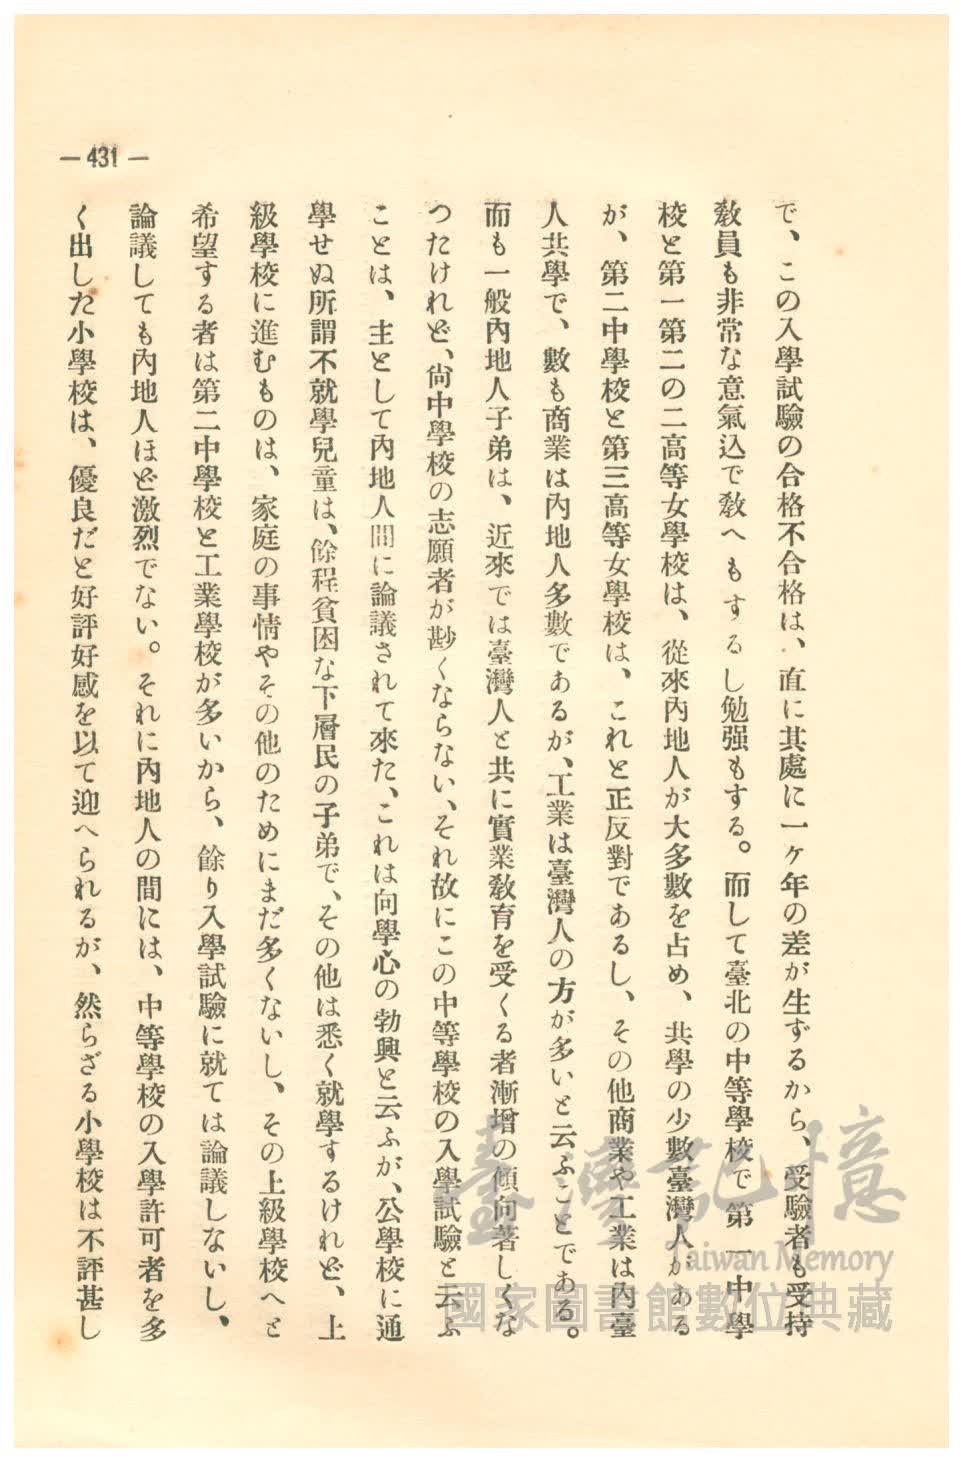 — 431 —
で、この入學試驗の合格不合格は、直に其處に一ヶ年の差が生ずるから、受驗者も受持
敎員も非常な意氣込で敎へもするし勉强もする。而して臺北の中等學校で第一中學
校と第一第二の二高等女學校は、從來內地人が大多數を占め、共學の少數臺灣人がある
が、第二中學校と第三高等女學校は、これと正反對であるし、その他商業や工業は內臺
人共學で、數も商業は內地人多數であるが、工業は臺灣人の方が多いと云ふことである。
而も一般內地人子弟は、近來では臺灣人と共に實業敎育を受くる者漸增の傾向著しくな
つたけれど、尙中學校の志願者が尠くならない、それ故にこの中等學校の入學試驗と云ふ
ことは、主として內地人間に論議されて來た、これは向學心の勃興と云ふが、公學校に通
學せぬ所謂不就學兒童は、餘程貧困な下層民の子弟で、その他は悉く就學するけれど、上
級學校に進むものは、家庭の事情やその他のためにまだ多くないし、その上級學校へと
希望する者は第二中學校と工業學校が多いから、餘り入學試驗に就ては論議しないし、
論議しても內地人ほど激烈でない。それに內地人の間には、中等學校の入學許可者を多
く出した小學校は、優良だと好評好感を以て迎へられるが、然らざる小學校は不評甚し
臺灣記憶
Taiwan Memory
國家圖書館數位典藏